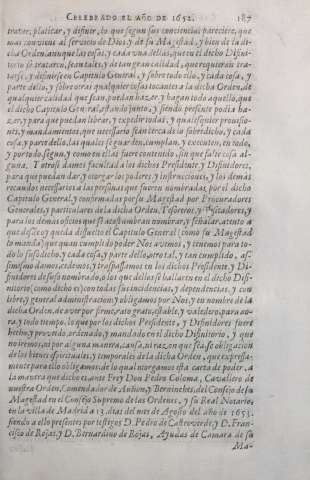 CELEBRADO EL AÑO DE 1652. 187
tratar, platicar, y difinir, lo que segun sus conciencias pareciere, que
mas conviene al servicio de Dios, y de su Magestad, y bien de la di-
cha Orden, aunque las cosas, y cada una dellas, que en el dicho Difini-
torio se trataren, sean tales, y de tan gran calidad, que requieran tra-
tarse, y difinirse en Capitulo General, y sobre todo ello, y cada cosa, y
parte dello, y sobre otras qualquier cosas tocantes a la dicha Orden, de
qualquier calidad que sean, puedan hazer, y hagan todo aquello, que
el dicho Capitulo General, estando junto, y siendo presente podia ha-
zer, y para que puedan librar, y expedir todas, y qualesquier provisio-
nes, y mandamientos, que necessario sean cerca de lo sobredicho, y cada
cosa, y parte dello, las quales se guarden, cumplan, y executen, en todo,
y por todo, segun, y como en ellas fuere contenido, sin que falte cosa al-
guna. Y otrosi damos facultad a los dichos Presidente, y Difinidores,
para que puedan dar, y otorgar los poderes, y instrucciones, y los demàs
recaudos necessarios a las personas que fueren nombradas por el dicho
Capitulo General, y confirmadas por su Magestad por Procuradores
Generales, y particulares de la dicha Orden, Tesoreros, y Visitadores, y
para los demas oficios que se acostumbran nombrar, y señalar, atento a
que dissuelto queda dissuelto el Capitulo General (como su Magestad
lo manda) que quan cumplido poder Nos avemos, y tenemos para to-
do lo susodicho, y cada cosa, y parte dello, otro tal, y tan cumplido, as-
simismo damos, cedemos, y traspassamos en los dichos Presidente, y Di-
finidores de suso nombrado, o los que dellos se hallaren en el dicho Difi-
nitorio (como dicho es) con todas sus incidencias, y dependencias, y con
libre, y general administracion: y obligamos por Nos, y en nombre de la
dicha Orden, de aver por firme, rato grato, estable, y valedero, para ao-
ra, y todo tiempo, lo que por los dichos Presidente, y Difinidores fuere
hecho, y proveìdo, ordenado, y mandado en el dicho Difinitorio, y que
no iremos, ni por alguna manera, causa, ni razon, que sea, so obligacion
de los bienes espirituales, y temporales de la dicha Orden, que expressa-
mente para ello obligamos: de lo qual otorgamos esta carta de poder, a
la manera que dicho es, ante Frey Don Pedro Coloma, Cavallero de
nuestra Orden, Comendador de Auñon, y Berninches, del Consejo de su
Magestad en el Consejo Supremo de las Ordenes, y su Real Notario,
en la villa de Madrid a 13. dias del mes de Agosto del año de 1653.
siendo a ello presentes por testigos D. Pedro de Castoverde, y D. Fran-
cisco de Rojas, y D. Bernardino de Rojas, Ayudas de Camara de su
Ma-